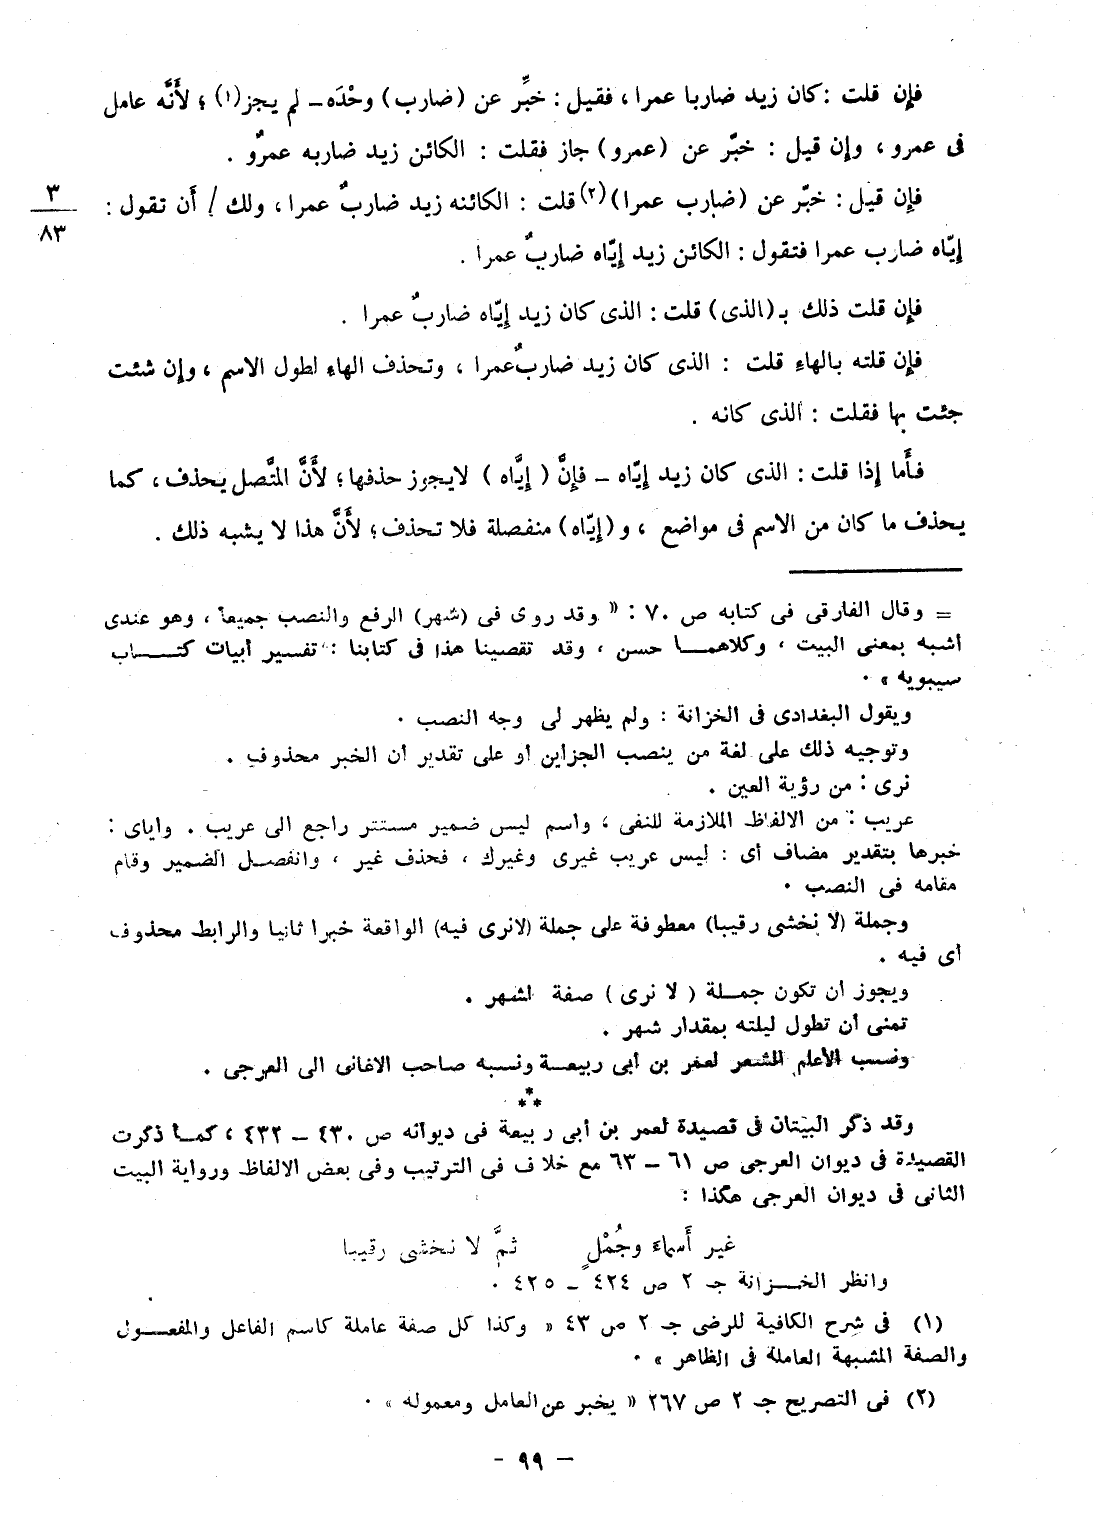 فإن قلت : كان زيد ضاربا عمرا ، فقيل : خبِّر عن (ضارب) وحْدَه ــ لم يجز(١) ؛ لأَنَّه عامل
فى عمرو ، وإن قيل : خبّر عن (عمرو) جاز فقلت : الكائن زيد ضاربه عمرٌو .
فإن قيل : خبّر عن (ضارب عمرا)(٢) قلت : الكائنه زيد ضاربٌ عمرا ، ولك / أَن تقول :
٣
٨٣
إيّاه ضارب عمرا فتقول : الكائن زيد إيّاه ضاربٌ عمرا .
فإن قلت ذلك بـ (الذى) قلت : الذى كان زيد إيّاه ضاربٌ عمرا .
فإن قلته بالهاءِ قلت : الذى كان زيد ضاربٌ عمرا ، وتحذف الهاءَ لطول الاسم ، وإن شئت
جئت بها فقلت : الذى كانه .
فأَما إذا قلت : الذى كان زيد إيّاه ــ فإنَّ ( إيَّاه ) لايجوز حذفها ؛ لأَنَّ المتَّصل يحذف ، كما
يحذف ما كان من الاسم فى مواضع ، و (إيّاه) منفصلة فلا تحذف ؛ لأَنَّ هذا لا يشبه ذلك .
= وقال الفارقى فى كتابه ص ٧٠ : « وقد روى فى (شهر) الرفع والنصب جميعا ، وهو عندى
أشبه بمعنى البيت ، وكلاهمـــا حسن ، وقد تقصينا هذا فى كتابنا : تفسير أبيات كتـــاب
سيبويه » .
ويقول البغدادى فى الخزانة : ولم يظهر لى وجه النصب .
وتوجيه ذلك على لغة من ينصب الجزاين أو على تقدير أن الخبر محذوف .
نرى : من رؤية العين .
عريب : من الالفاظ الملازمة للنفى ، واسم ليس ضمير مستتر راجع الى عريب . واياى :
خبرها بتقدير مضاف أى : ليس عريب غيرى وغيرك ، فحذف غير ، وانفصل الضمير وقام
مقامه فى النصب .
وجملة (لا نخشى رقيبا) معطوفة على جملة (لانرى فيه) الواقعة خبرا ثانيا والرابط محذوف
أى فيه .
ويجوز أن تكون جمـــلة ( لا نرى ) صفة لشهر .
تمنى أن تطول ليلته بمقدار شهر .
ونسب الأعلم الشعر لعمر بن أبى ربيعـــة ونسبه صاحب الاغانى الى العرجى .
***
وقد ذكر البيتان فى قصيدة لعمر بن أبى ربيعة فى ديوانه ص ٤٣٠ ــ ٤٣٢ ، كمـــا ذكرت
القصيدة فى ديوان العرجى ص ٦١ ــ ٦٣ مع خلاف فى الترتيب وفى بعض الالفاظ ورواية البيت
الثانى فى ديوان العرجى هكذا :
غير أَسماءَ وجُمْلٍ ثمَّ لا نخشى رقيبا
وانظر الخـــزانة جـ ٢ ص ٤٢٤ ــ ٤٢٥ .
(١) فى شرح الكافية للرضى جـ ٢ ص ٤٣ « وكذا كل صفة عاملة كاسم الفاعل والمفعـــول
والصفة المشبهة العاملة فى الظاهر » .
(٢) فى التصريح جـ ٢ ص ٢٦٧ « يخبر عن العامل ومعموله » .
— ٩٩ -